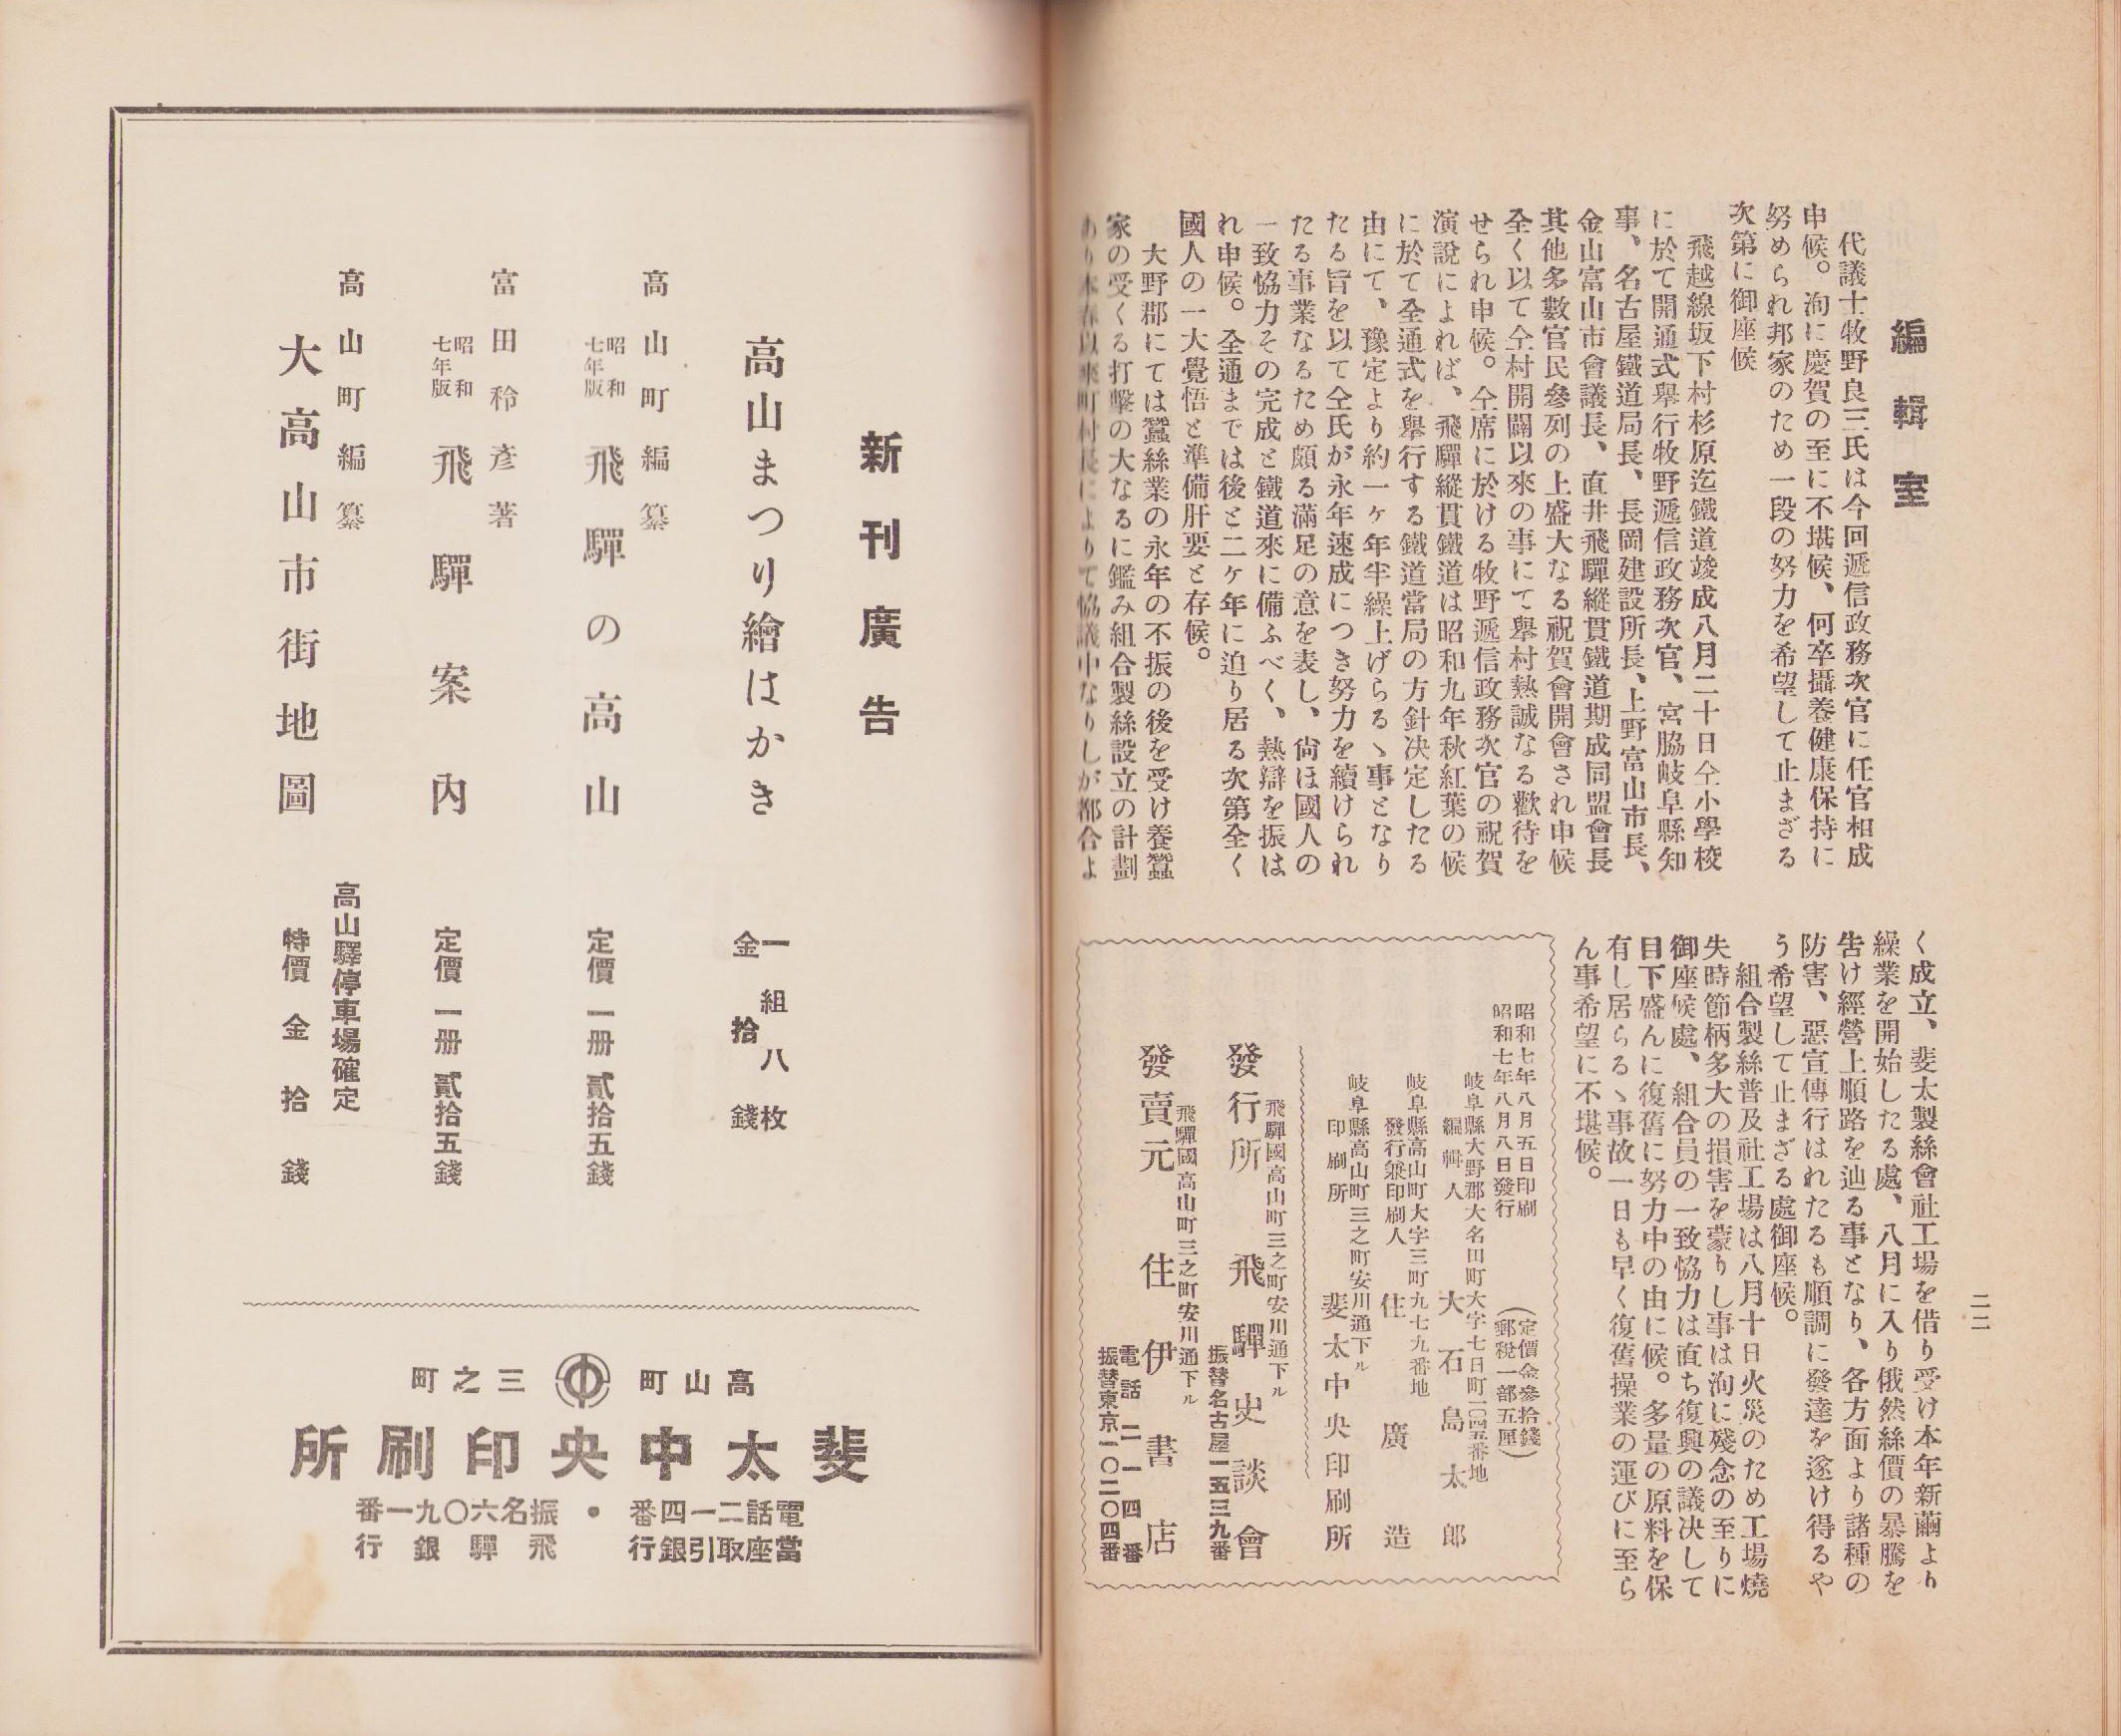 編輯室
代議士牧野良三氏は今回遞信政務次官に任官相成
申候。洵に慶賀の至に不堪候、何卒攝養健康保持に
努められ邦家のため一段の努力を希望して止まざる
次第に御座候
飛越線坂下村杉原迄鐵道竣成八月二十日仝小學校
に於て開通式舉行牧野遞信政務次官、宮脇岐阜縣知
事、名古屋鐵道局長、長岡建設所長、上野富山市長、
金山富山市會議長、直井飛驒縱貫鐵道期成同盟會長
其他多數官民參列の上盛大なる祝賀會開會され申候
全く以て仝村開闢以來の事にて舉村熱誠なる歡待を
せられ申候。仝席に於ける牧野遞信政務次官の祝賀
演說によれば、飛驒縱貫鐵道は昭和九年秋紅葉の候
に於て全通式を舉行する鐵道當局の方針決定したる
由にて、豫定より約一ヶ年半繰上げらるゝ事となり
たる旨を以て仝氏が永年速成につき努力を續けられ
たる事業なるため頗る滿足の意を表し、尙ほ國人の
一致協力その完成と鐵道來に備ふべく、熱辯を振は
れ申候。全通までは後と二ヶ年に迫り居る次第全く
國人の一大覺悟と準備肝要と存候。
大野郡にては蠶絲業の永年の不振の後を受け養蠶
家の受くる打擊の大なるに鑑み組合製絲設立の計劃
あり本春以來町村長によりて協議中なりしが都合よ
く成立、斐太製絲會社工場を借り受け本年新繭より
繰業を開始したる處、八月に入り俄然絲價の暴騰を
吿け經營上順路を辿る事となり、各方面より諸種の
防害、惡宣傳行はれたるも順調に發達を遂け得るや
う希望して止まざる處御座候。
組合製絲普及社工場は八月十日火災のため工場燒
失時節柄多大の損害を蒙りし事は洵に殘念の至りに
御座候處、組合員の一致協力は直ち復興の議決して
目下盛んに復舊に努力中の由に候。多量の原料を保
有し居らるゝ事故一日も早く復舊操業の運びに至ら
ん事希望に不堪候。
二二
昭和七年八月五日印刷
昭和七年八月八日發行
(定價金參拾錢)
(郵稅一部五厘)
岐阜縣大野郡大名田町大字七日町一〇四五番地
編輯人 大石島太郎
岐阜縣高山町大字三町九七九番地
發行兼印刷人 住廣造
岐阜縣高山町三之町安川通下ル
印刷所 斐太中央印刷所
飛驒國高山町三之町安川通下ル
發行所 飛驒史談會
振替名古屋一五三九番
飛驒國高山町三之町安川通下ル
發賣元 住伊書店
電話二一四番
振替東京一〇二〇四番
新刊廣告
高山まつり繪はかき
一組八枚
金拾錢
高山町編纂
昭和七年版 飛驒の高山 定價一册貳拾五錢
富田秢彥著
昭和七年版 飛驒案內 定價一册貳拾五錢
高山町編纂
大高山市街地圖
高山驛停車場確定
特價金拾錢
高山町 中 三之町
斐太中央印刷所
電話二一四番・振名六〇九一番
當座取引銀行 飛驒銀行